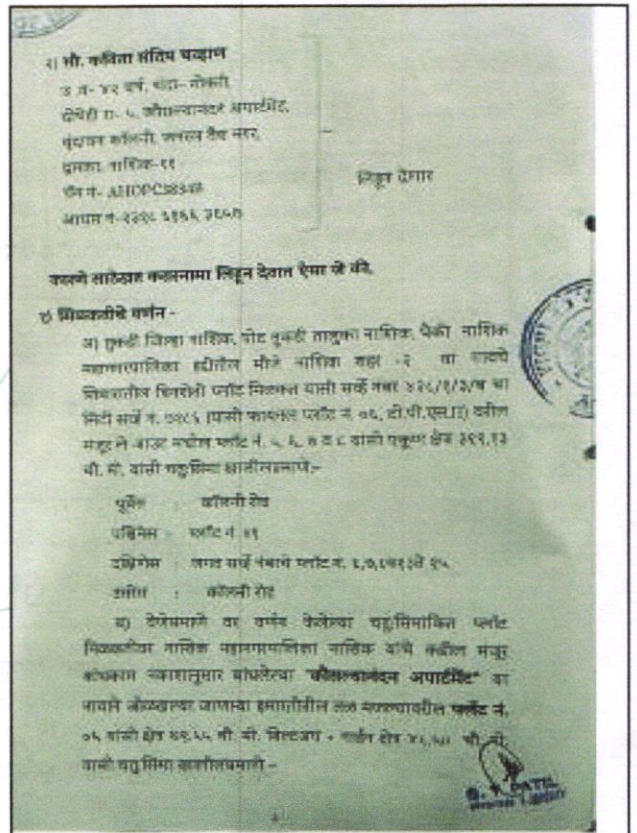 २) सौ. कविता संदिप चव्हाण
उ.व- ४२ वर्ष, धंदा- नोकरी,
दोघेही रा- ५, कौसल्यानंदन अपार्टमेंट,
वृंदावन कॉलनी, जनरल वैद्य नगर,
द्वारका, नाशिक-११
पॅन नं-
आधार नं-
लिहून देणार
कारणे साठेखत करारनामा लिहून देतात ऐसा जे की,
१) मिळकतीचे वर्णन -
अ) तुकडी जिल्हा नाशिक, पोट तुकडी तालुका नाशिक, पैकी नाशिक
महानगरपालिका हद्दीतील मौजे नाशिक शहर -२ या गावचे
शिवारातील बिनशेती प्लॉट मिळकत यासी सर्व्हे नंबर
सिटी सर्व्हे नं. (यासी फायनल प्लॉट नं. टी.पी.एस.II) वरील
मंजूर ले आउट मधील प्लॉट नं. ५, ६, ७ व ८ यांसी एकूण क्षेत्र
चौ. मी. यांसी चतुःसिमा खालीलप्रमाणे,-
पूर्वेस : कॉलनी रोड
पश्चिमेस : प्लॉट नं.
दक्षिणेस : लगत सर्व्हे नंबरचे प्लॉट नं.
उत्तरेस : कॉलनी रोड
ब) येणेप्रमाणे वर वर्णन केलेल्या चतुःसिमांकित प्लॉट
मिळकतीवर नाशिक महानगरपालिका नाशिक यांचे कडील मंजूर
बांधकाम नकाशानुसार बांधलेल्या "कौसल्यानंदन अपार्टमेंट" या
नावाने ओळखल्या जाणाऱ्या इमारतीतील तळ मजल्यावरील फ्लॅट नं.
०५ यांसी क्षेत्र चौ. मी. बिल्टअप + गार्डन क्षेत्र चौ. मी.
यासी चतुःसिमा खालीलप्रमाणे -